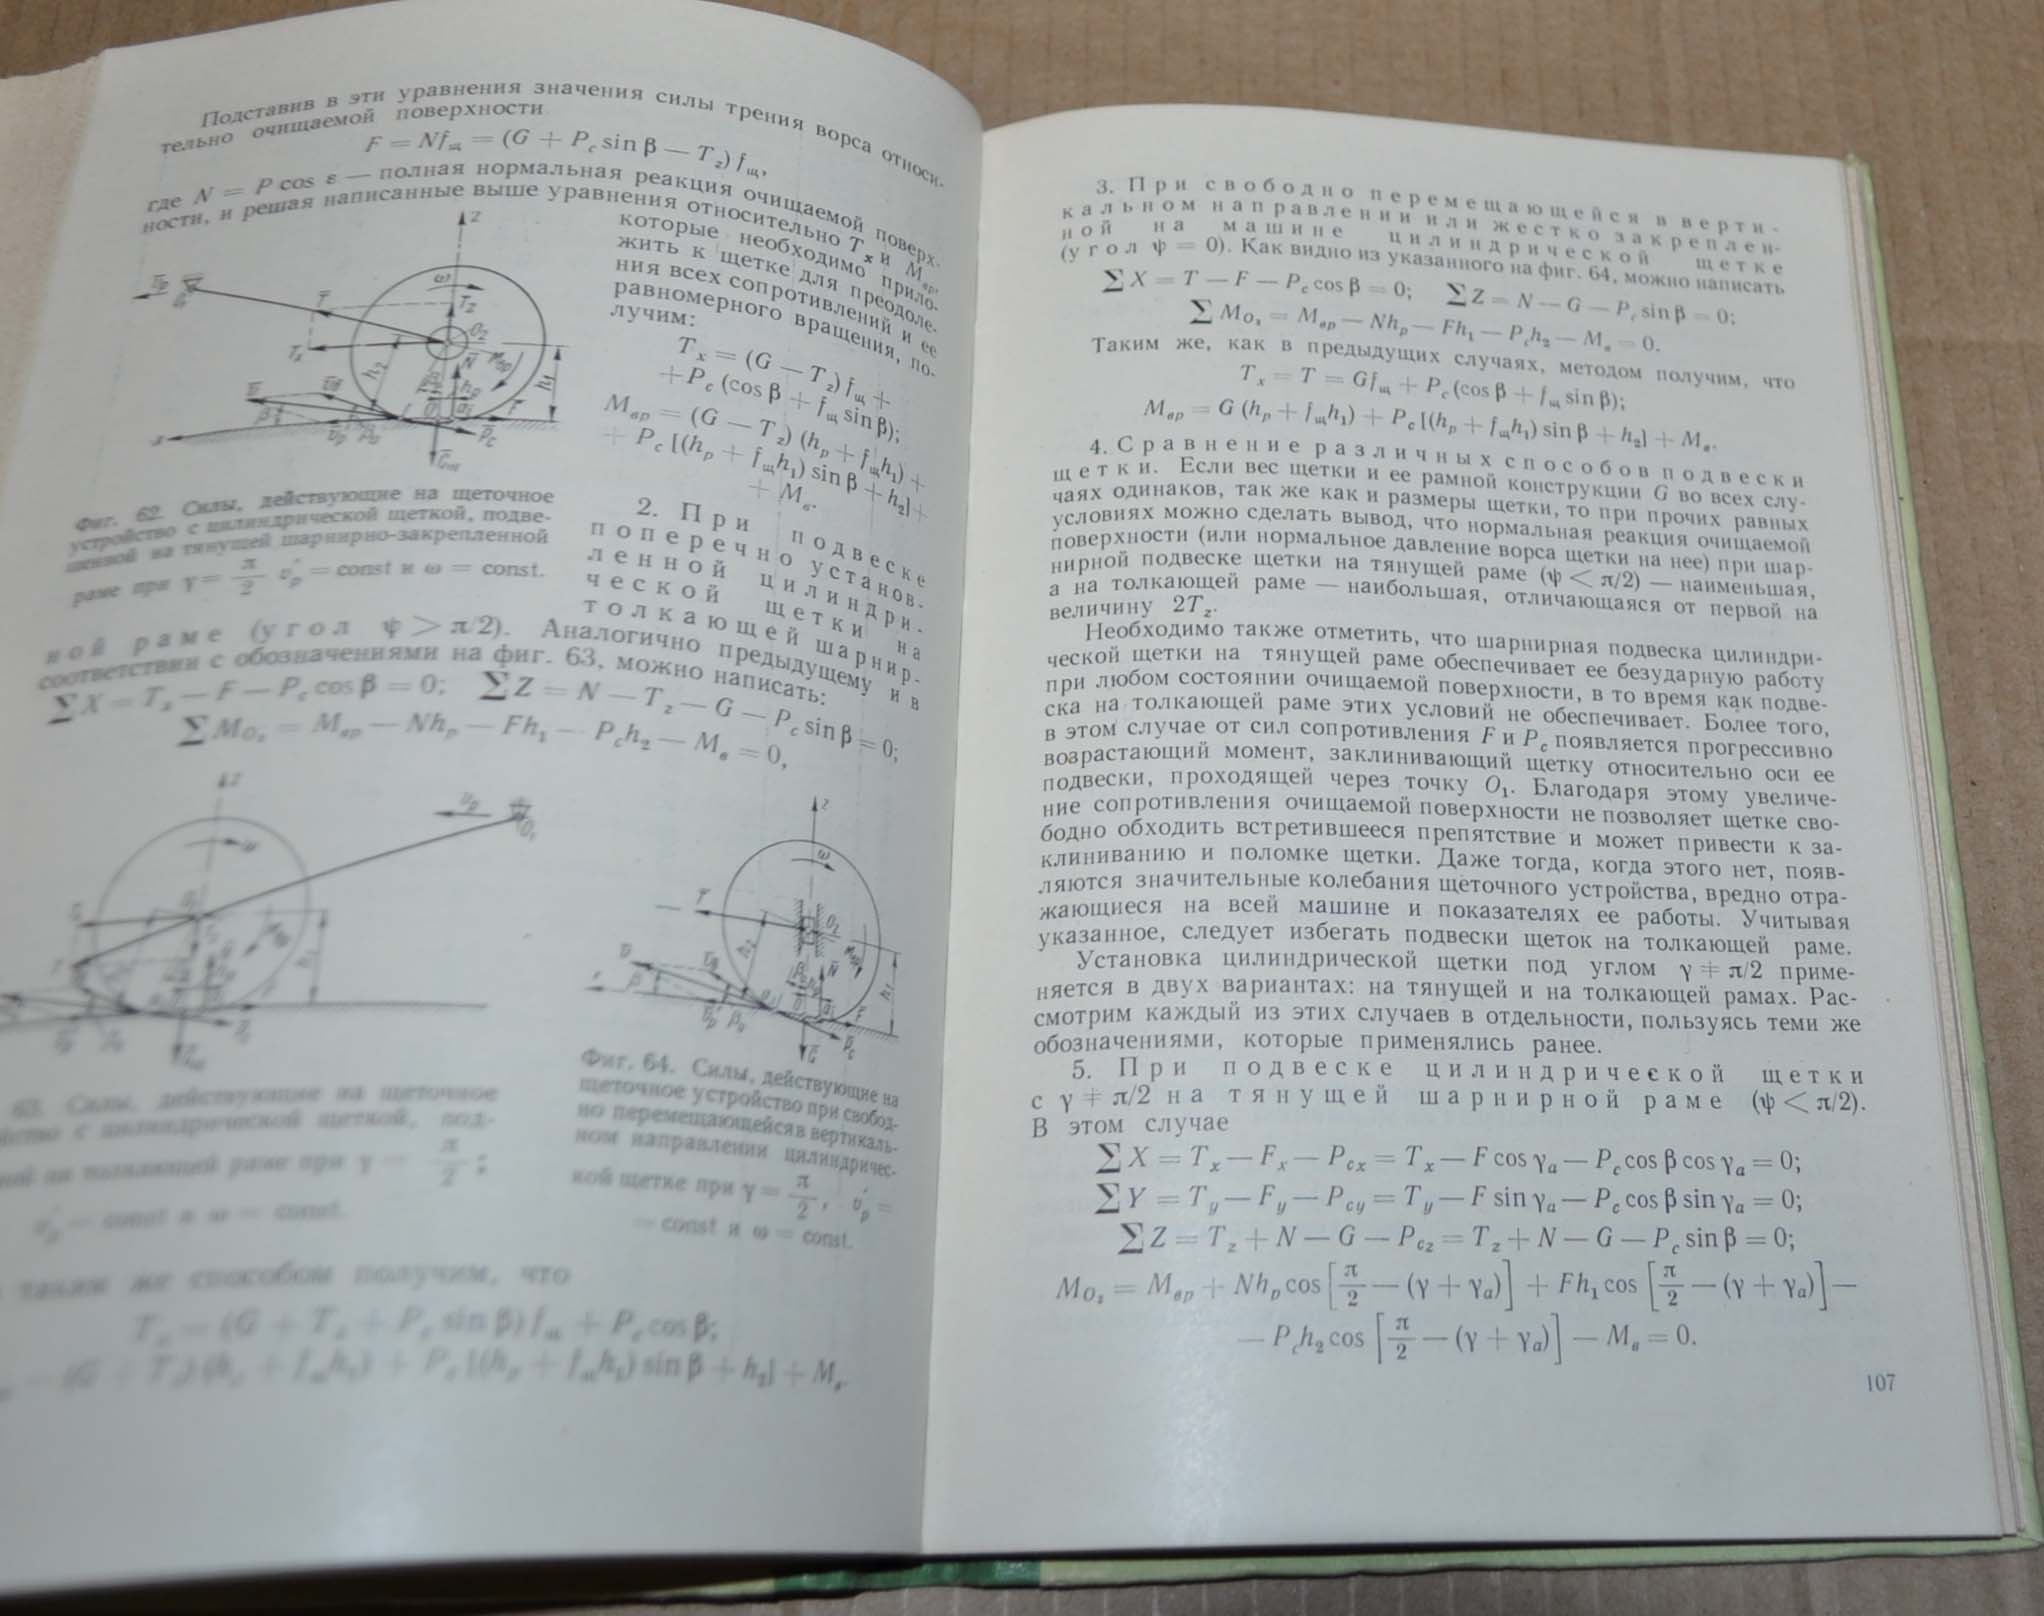 Подставив в эти уравнения значения силы трения ворса относи-
тельно очищаемой поверхности
F = Nf_щ = (G + P_c sin β — T_z) f_щ,
где N = P cos ε — полная нормальная реакция очищаемой поверх-
ности, и решая написанные выше уравнения относительно T_x и M_вр,
которые необходимо прило-
жить к щетке для преодоле-
ния всех сопротивлений и ее
равномерного вращения, по-
лучим:
T_x = (G — T_z) f_щ +
+ P_c (cos β + f_щ sin β);
M_вр = (G — T_z) (h_p + f_щh_1) +
+ P_c [(h_p + f_щh_1) sin β + h_2] +
+ M_в.
Фиг. 62. Силы, действующие на щеточное
устройство с цилиндрической щеткой, подве-
шенной на тянущей шарнирно-закрепленной
раме при γ = π/2 v'_p = const и ω = const.
2. При подвеске
поперечно установ-
ленной цилиндри-
ческой щетки на
толкающей шарнир-
ной раме (угол ψ > π/2). Аналогично предыдущему и в
соответствии с обозначениями на фиг. 63, можно написать:
∑X = T_x — F — P_c cos β = 0; ∑Z = N — T_z — G — P_c sin β = 0;
∑M_O₂ = M_вр — Nh_p — Fh_1 — P_ch_2 — M_в = 0,
63. Силы, действующие на щеточное
с цилиндрической щеткой, под-
на толкающей раме при γ = π/2;
v'_p = const и ω = const.
Фиг. 64. Силы, действующие на
щеточное устройство при свобод-
но перемещающейся в вертикаль-
ном направлении цилиндричес-
кой щетке при γ = π/2, v'_p =
= const и ω = const.
таким же способом получим, что
T_x = (G + T_z + P_c sin β) f_щ + P_c cos β;
= (G + T_z) (h_p + f_щh_1) + P_c [(h_p + f_щh_1) sin β + h_2] + M_в.
3. При свободно перемещающейся в верти-
кальном направлении или жестко закреплен-
ной на машине цилиндрической щетке
(угол ψ = 0). Как видно из указанного на фиг. 64, можно написать
∑X = T — F — P_c cos β = 0; ∑Z = N — G — P_c sin β = 0;
∑M_O₂ = M_вр — Nh_p — Fh_1 — P_ch_2 — M_в = 0.
Таким же, как в предыдущих случаях, методом получим, что
T_x = T = Gf_щ + P_c (cos β + f_щ sin β);
M_вр = G (h_p + f_щh_1) + P_c [(h_p + f_щh_1) sin β + h_2] + M_в.
4. Сравнение различных способов подвески
щетки. Если вес щетки и ее рамной конструкции G во всех слу-
чаях одинаков, так же как и размеры щетки, то при прочих равных
условиях можно сделать вывод, что нормальная реакция очищаемой
поверхности (или нормальное давление ворса щетки на нее) при шар-
нирной подвеске щетки на тянущей раме (ψ < π/2) — наименьшая,
а на толкающей раме — наибольшая, отличающаяся от первой на
величину 2T_z.
Необходимо также отметить, что шарнирная подвеска цилиндри-
ческой щетки на тянущей раме обеспечивает ее безударную работу
при любом состоянии очищаемой поверхности, в то время как подве-
ска на толкающей раме этих условий не обеспечивает. Более того,
в этом случае от сил сопротивления F и P_c появляется прогрессивно
возрастающий момент, заклинивающий щетку относительно оси ее
подвески, проходящей через точку O₁. Благодаря этому увеличе-
ние сопротивления очищаемой поверхности не позволяет щетке сво-
бодно обходить встретившееся препятствие и может привести к за-
клиниванию и поломке щетки. Даже тогда, когда этого нет, появ-
ляются значительные колебания щеточного устройства, вредно отра-
жающиеся на всей машине и показателях ее работы. Учитывая
указанное, следует избегать подвески щеток на толкающей раме.
Установка цилиндрической щетки под углом γ ≠ π/2 приме-
няется в двух вариантах: на тянущей и на толкающей рамах. Рас-
смотрим каждый из этих случаев в отдельности, пользуясь теми же
обозначениями, которые применялись ранее.
5. При подвеске цилиндрической щетки
с γ ≠ π/2 на тянущей шарнирной раме (ψ < π/2).
В этом случае
∑X = T_x — F_x — P_cx = T_x — F cos γ_a — P_c cos β cos γ_a = 0;
∑Y = T_y — F_y — P_cy = T_y — F sin γ_a — P_c cos β sin γ_a = 0;
∑Z = T_z + N — G — P_cz = T_z + N — G — P_c sin β = 0;
M_O₂ = M_вр + Nh_p cos [π/2 — (γ + γ_a)] + Fh_1 cos [π/2 — (γ + γ_a)] —
— P_ch_2 cos [π/2 — (γ + γ_a)] — M_в = 0.
107